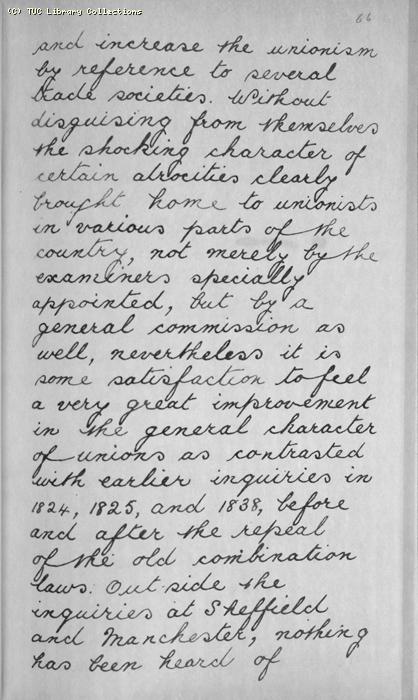 (C) TUC Library Collections
66
and increase the unionism
by reference to several
trade societies. Without
disguising from themselves
the shocking character of
certain atrocities clearly
brought home to unionists
in various parts of the
country, not merely by the
examiners specially
appointed, but by a
general commission as
well, nevertheless it is
some satisfaction to feel
a very great improvement
in the general character
of unions as contrasted
with earlier inquiries in
1824, 1825, and 1838, before
and after the repeal
of the old combination
laws. Out-side the
inquiries at Sheffield
and Manchester, nothing
has been heard of